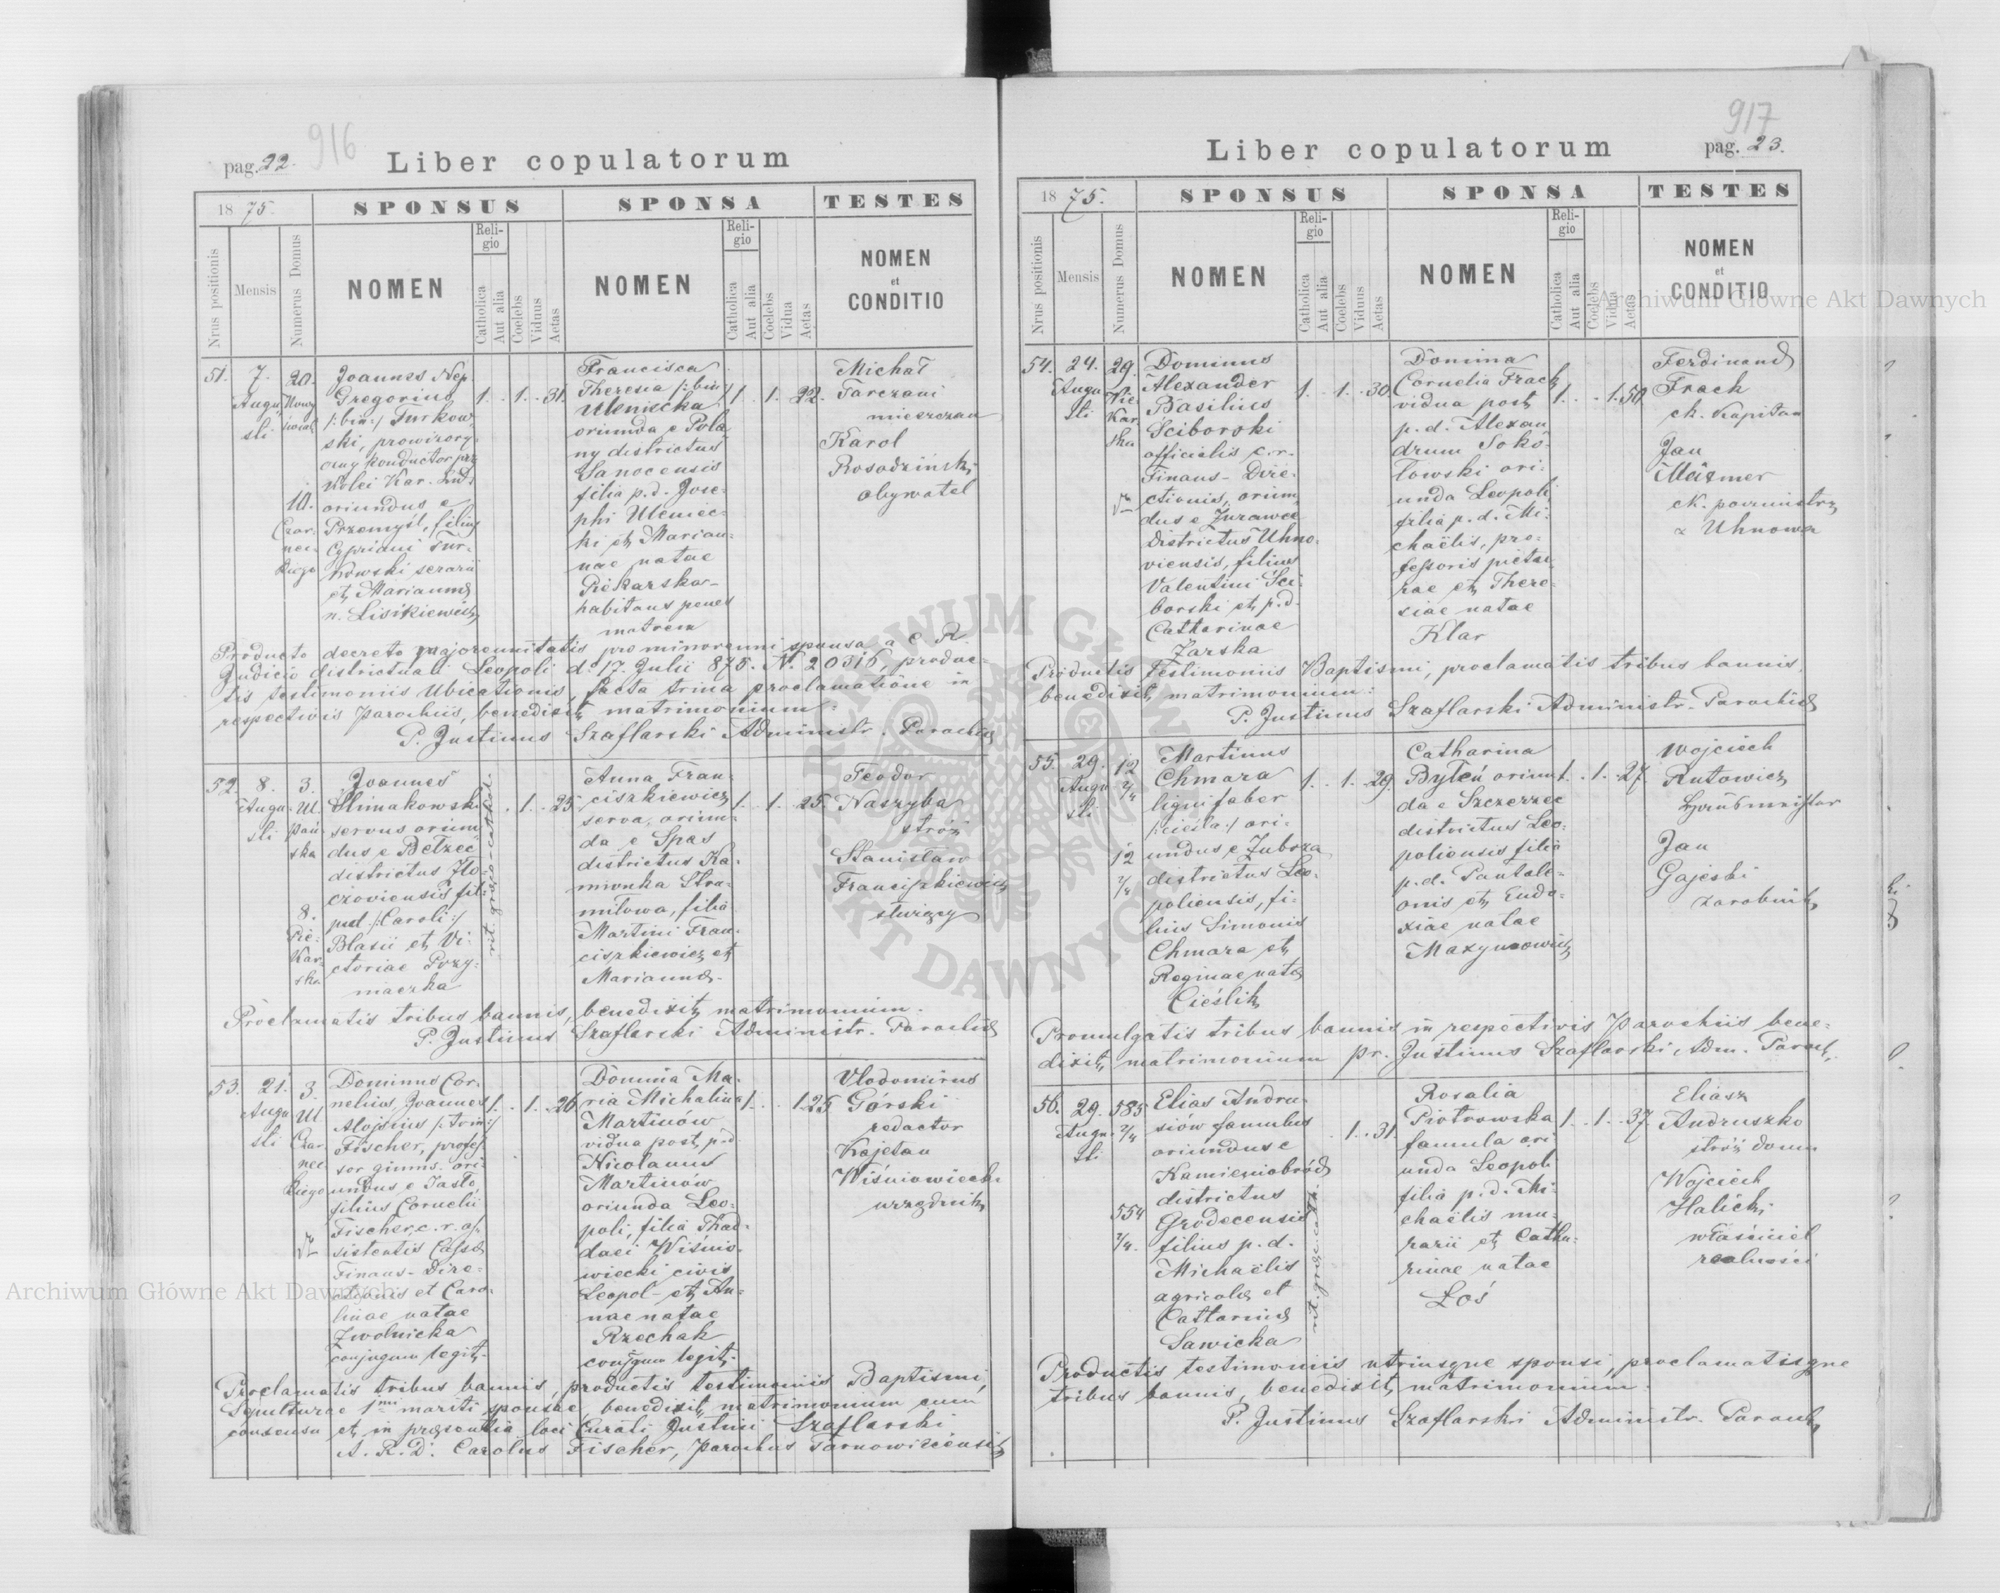 916
pag. 22.
Liber copulatorum
1875.
SPONSUS
SPONSA
TESTES
Nrus positionis
Mensis
Numerus Domus
NOMEN
Religio
Catholica
Aut alia
Coelebs
Viduus
Aetas
NOMEN
Religio
Catholica
Aut alia
Coelebs
Vidua
Aetas
NOMEN
et
CONDITIO
51.
7.
Augu
sti
20.
10.
Czar
nec
kiego
Joannes Nep
Gregorius
/:bin:/ Turkow
ski, prowizory
czny konductor prz
Kolei Kar. Lud.
oriundus e
Przemyśl, filius
Cypriani Tur-
kowski
et Mariannae
n. Lisikiewicz
1. 1. 31.
Francisca
Theresia /:bin:/
Uleniecka
oriunda e Pola
ny districtus
Sanocensis
filia p. d. Jose-
phi Uleniec-
ki et Marian-
nae natae
Piekarska
habitans penes
matrem
1. 1. 22.
Michał
Tarczani
mieszczan
Karol
Rosadziński
obywatel
Producto decreto majorennitatis pro minorenni sponsa a C. R.
Judicio districtuali Leopoli d. 17. Julii 875. N. 20516, produc-
tis testimoniis Ubicationis, facta trina proclamatione in
respectivis Parochiis, benedixit matrimonium:
P. Justinus Szaflarski Administr. Parochiae
52.
8.
Augu
sti
3.
Ul.
Pań
ska
8.
Pie-
kar-
ska
Joannes
Słimakowski
servus oriun
dus e Bełzec
districtus Zło-
czoviensis fil:
/:Caroli:/
Blasii et Vi-
ctoriae Przy-
maczka
rit. graeco-cathol.
1. 25.
Anna Fran-
ciszkiewicz
serva, oriun-
da e Spas
districtus Ka-
mionka Stru-
miłowa, filia
Martini Fran-
ciszkiewicz et
Mariannae.
1. 1. 25.
Teodor
Naszyba
stróż
Stanisław
Franciszkiewicz
służący
Proclamatis tribus bannis, benedixit matrimonium.
P. Justinus Szaflarski Administr. Parochiae
53.
21.
Augu
sti
3.
Ul.
Czar
nec
kiego
Dominus Cor-
nelius Joannes
Aloysius /:trin:/
Fischer, profes
sor gimns. ori
undus e Jasło,
filius Cornelii
Fischer, c. r. as
sistentis Cassae
Finans-Dire-
ctionis et Caro-
linae natae
Zwolnicka
conjugum legit.
1. 1. 26
Domina Ma-
ria Michalina
Martinów
vidua post p. d
Nicolaum
Martinów
oriunda Leo-
poli, filia Thad-
daei Wiśnio-
wiecki civis
Leopol- et An-
nae natae
Rzechak
conjgum legit.
1. 1. 25
Vlodomirus
Górski
redactor
Kajetan
Wiśniowiecki
urzędnik
Proclamatis tribus bannis, productis testimoniis Baptismi,
Sepulturae 1mi mariti sponsae, benedixit matrimonium cum
consensu et in praesentia loci Curati Justini Szaflarski
A. R. D. Carolus Fischer, Parochus Tarnowiecensis
917
Liber copulatorum
pag. 23.
1875.
SPONSUS
SPONSA
TESTES
Nrus positionis
Mensis
Numerus Domus
NOMEN
Religio
Catholica
Aut alia
Coelebs
Viduus
Aetas
NOMEN
Religio
Catholica
Aut alia
Coelebs
Vidua
Aetas
NOMEN
et
CONDITIO
54.
24.
Augu
sti
29.
Pie
kar
ska
Dominus
Alexander
Basilius
Ściborski
officialis c. r.
Finans-Dire-
ctionis, oriun
dus e Żurawce
Districtus Uhno-
viensis, filius
Valentini Ści-
borski et p. d.
Catharinae
Żarska
1. 1. 30.
Domina
Cornelia Frach
vidua post
p. d. Alexan
drum Soko-
łowski ori-
unda Leopoli
filia p. d. Mi-
chaëlis, pro-
fessoris pictu-
rae et There-
siae natae
Klar
1. 1. 50
Ferdinand
Frach
ck. Kapitan
Jan
ck. poczmistrz
z Uhnowa
Productis testimoniis Baptismi, proclamatis tribus bannis,
benedixit matrimonium:
P. Justinus Szaflarski Administr. Parochiae
55.
29.
Augu
sti
12
2/4
12
2/4
Martinus
Chmara
ligni faber
/:cieśla:/ ori-
undus e Zubrza
districtus Leo-
poliensis, fi-
lius Simonis
Chmara et
Reginae natae
Cieślik
1. 1. 29.
Catharina
Byłeń oriun
da e Szczerzec
districtus Leo-
poliensis filia
p. d. Pantale-
onis et Eudo-
xiae natae
Maxymowicz
1. 1. 27.
Wojciech
Rutowicz
Jan
Gajeski
zarobnik
Promulgatis tribus bannis in respectivis Parochiis bene-
dixit matrimonium pr. Justinus Szaflarski Adm. Paroch.
56.
29.
Augu
sti
585
2/4
554
2/4.
Elias Andru-
siów famulus
oriundus e
Kamieniobród
districtus
Grodecensis
filius p. d.
Michaëlis
agricolae et
Catharinae
Sawicka
rit. graec. cath.
1. 31.
Rosalia
Piotrowska
famula ori
unda Leopoli
filia p. d. Mi-
chaëlis mu-
rarii et Catha-
rinae natae
Łoś
1. 1. 37.
Eliasz
Andruszko
stróż domu
Wojciech
Halicki
właściciel
realności
Productis testimoniis utriusque sponsi, proclamatisque
tribus bannis, benedixit matrimonium.
P. Justinus Szaflarski Administr. Paroch.
Archiwum Główne Akt Dawnych
Archiwum Główne Akt Dawnych
ARCHIWUM GŁÓWNE AKT DAWNYCH